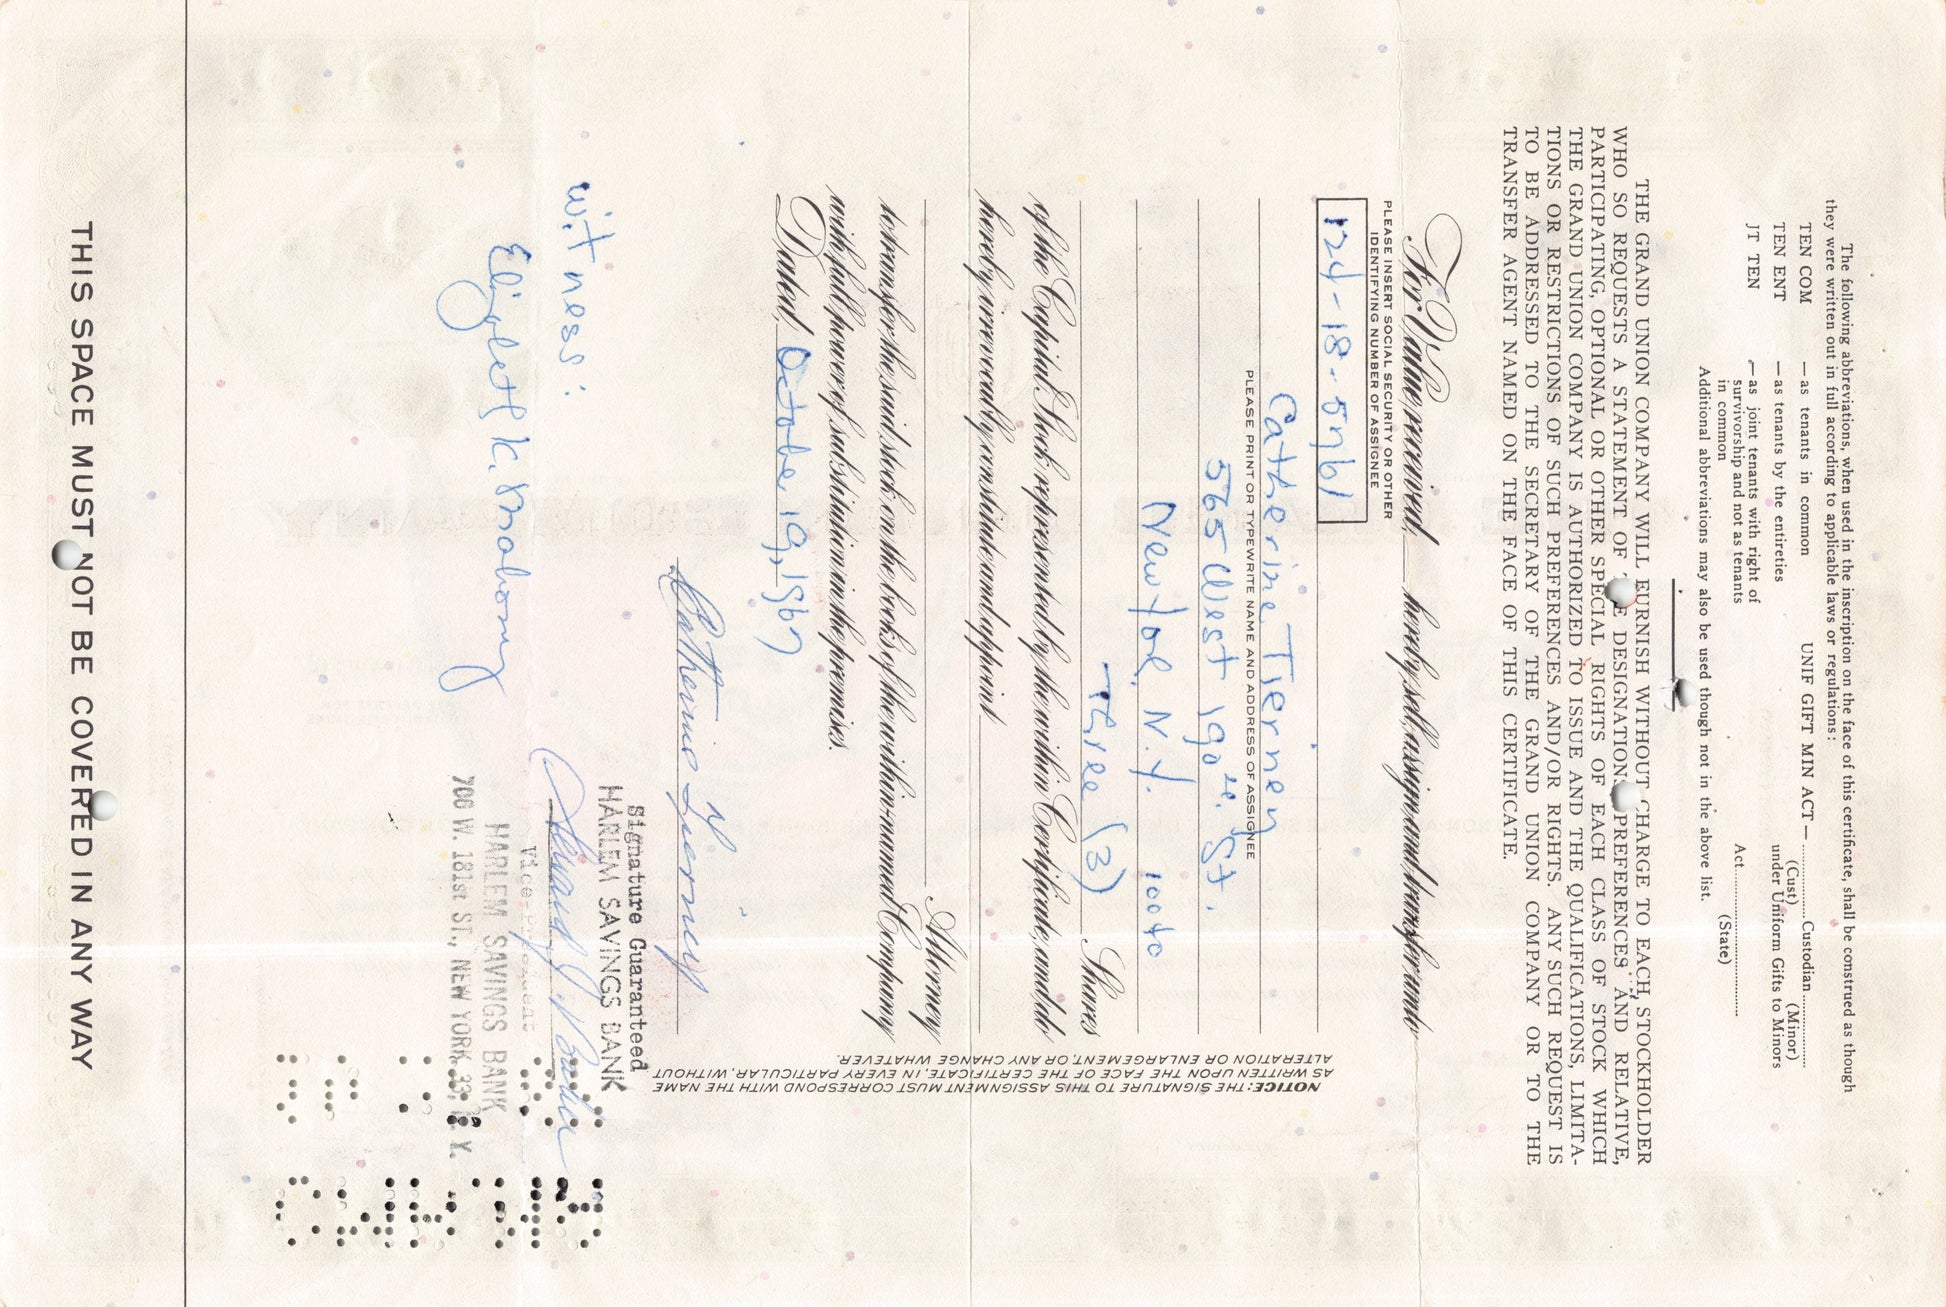 The following abbreviations, when used in the inscription on the face of this certificate, shall be construed as though
they were written out in full according to applicable laws or regulations:
TEN COM — as tenants in common UNIF GIFT MIN ACT — ............ Custodian ............
(Cust) (Minor)
TEN ENT — as tenants by the entireties under Uniform Gifts to Minors
JT TEN — as joint tenants with right of
survivorship and not as tenants Act ............
in common (State)
Additional abbreviations may also be used though not in the above list.
THE GRAND UNION COMPANY WILL FURNISH WITHOUT CHARGE TO EACH STOCKHOLDER
WHO SO REQUESTS A STATEMENT OF DESIGNATIONS, PREFERENCES AND RELATIVE,
PARTICIPATING, OPTIONAL OR OTHER SPECIAL RIGHTS OF EACH CLASS OF STOCK WHICH
THE GRAND UNION COMPANY IS AUTHORIZED TO ISSUE AND THE QUALIFICATIONS, LIMITA-
TIONS OR RESTRICTIONS OF SUCH PREFERENCES AND/OR RIGHTS. ANY SUCH REQUEST IS
TO BE ADDRESSED TO THE SECRETARY OF THE GRAND UNION COMPANY OR TO THE
TRANSFER AGENT NAMED ON THE FACE OF THIS CERTIFICATE.
For Value received, hereby sell, assign and transfer unto
PLEASE INSERT SOCIAL SECURITY OR OTHER
IDENTIFYING NUMBER OF ASSIGNEE
124-18-5761
Catherine Tierney
PLEASE PRINT OR TYPEWRITE NAME AND ADDRESS OF ASSIGNEE
565 West 190th St.
New York, N.Y. 10040
Three (3) Shares
of the Capital Stock represented by the within Certificate, and do
hereby irrevocably constitute and appoint
Attorney
to transfer the said stock on the books of the within-named Company
with full power of substitution in the premises.
Dated, October 19, 1967
Catherine Tierney
NOTICE: THE SIGNATURE TO THIS ASSIGNMENT MUST CORRESPOND WITH THE NAME
AS WRITTEN UPON THE FACE OF THE CERTIFICATE, IN EVERY PARTICULAR, WITHOUT
ALTERATION OR ENLARGEMENT, OR ANY CHANGE WHATEVER.
witness:
Elizabeth K. Mahony
Signature Guaranteed
HARLEM SAVINGS BANK
Vice-President
HARLEM SAVINGS BANK
706 W. 181st ST., NEW YORK 33, N. Y.
THIS SPACE MUST NOT BE COVERED IN ANY WAY